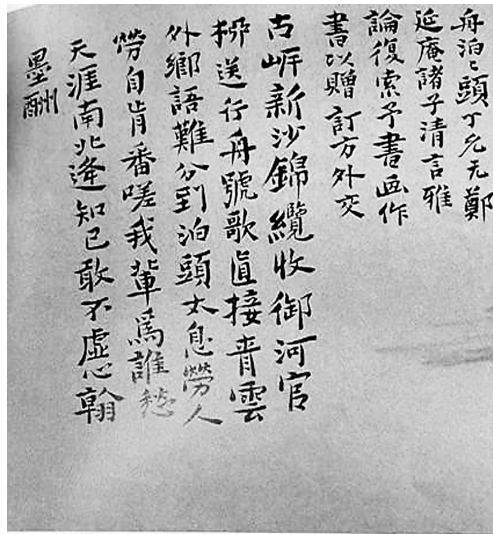 舟泊〻頭丁允元鄭
延庵諸子清言雅
論復索予書画作
書以贈訂方外交
古岸新沙錦纜收御河官
柳送行舟號歌直接青雲
外鄉語難分到泊頭太息勞人
勞自肯番嗟我輩爲誰愁
天涯南北逢知己敢不虛心翰
墨酬